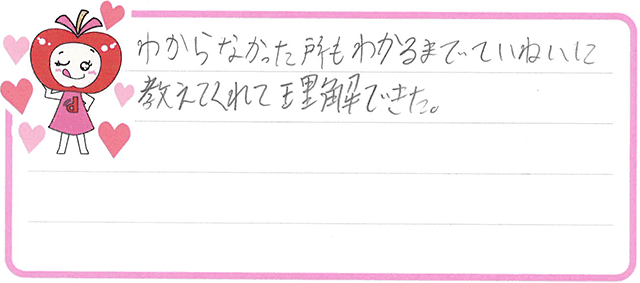 わからなかった所もわかるまでていねいに
教えてくれて理解できた。